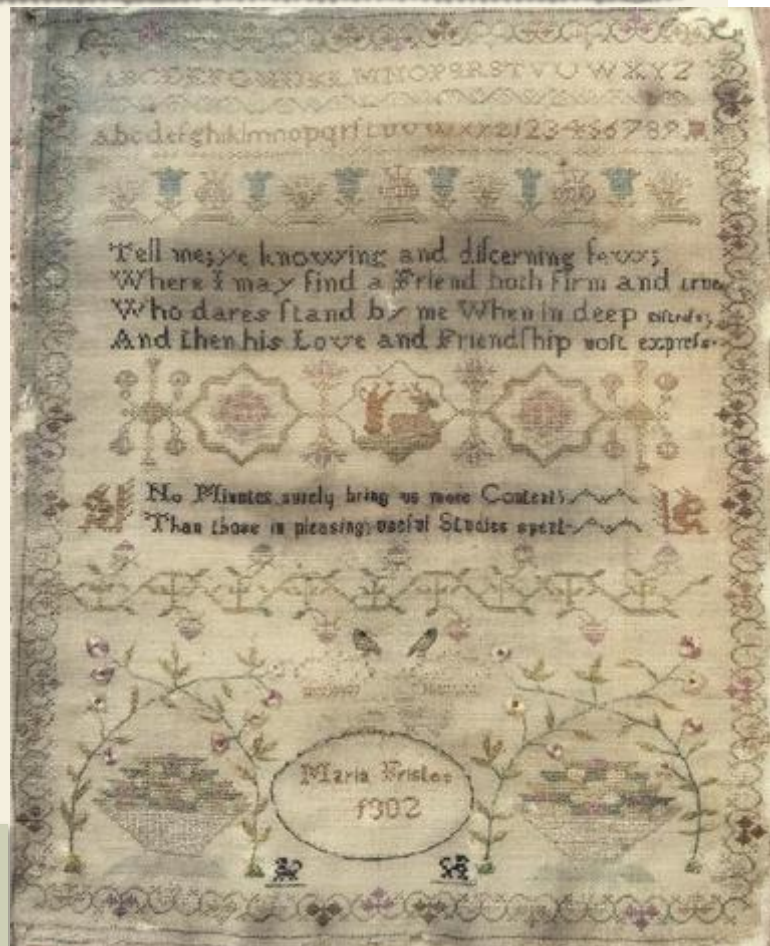 ABCDEFGHIKLMNOPQRSTVUWXYZ
abcdefghiklmnopqrſtuvwxyz123456789
Tell me; ye knowing and diſcerning few;
Where I may find a Friend both Firm and true
Who dares ſtand by me When in deep
And then his Love and Friendſhip moſt expreſs
No Minutes surely bring us more Content;
Than those in pleasing; useful Studies spent
Maria
1802